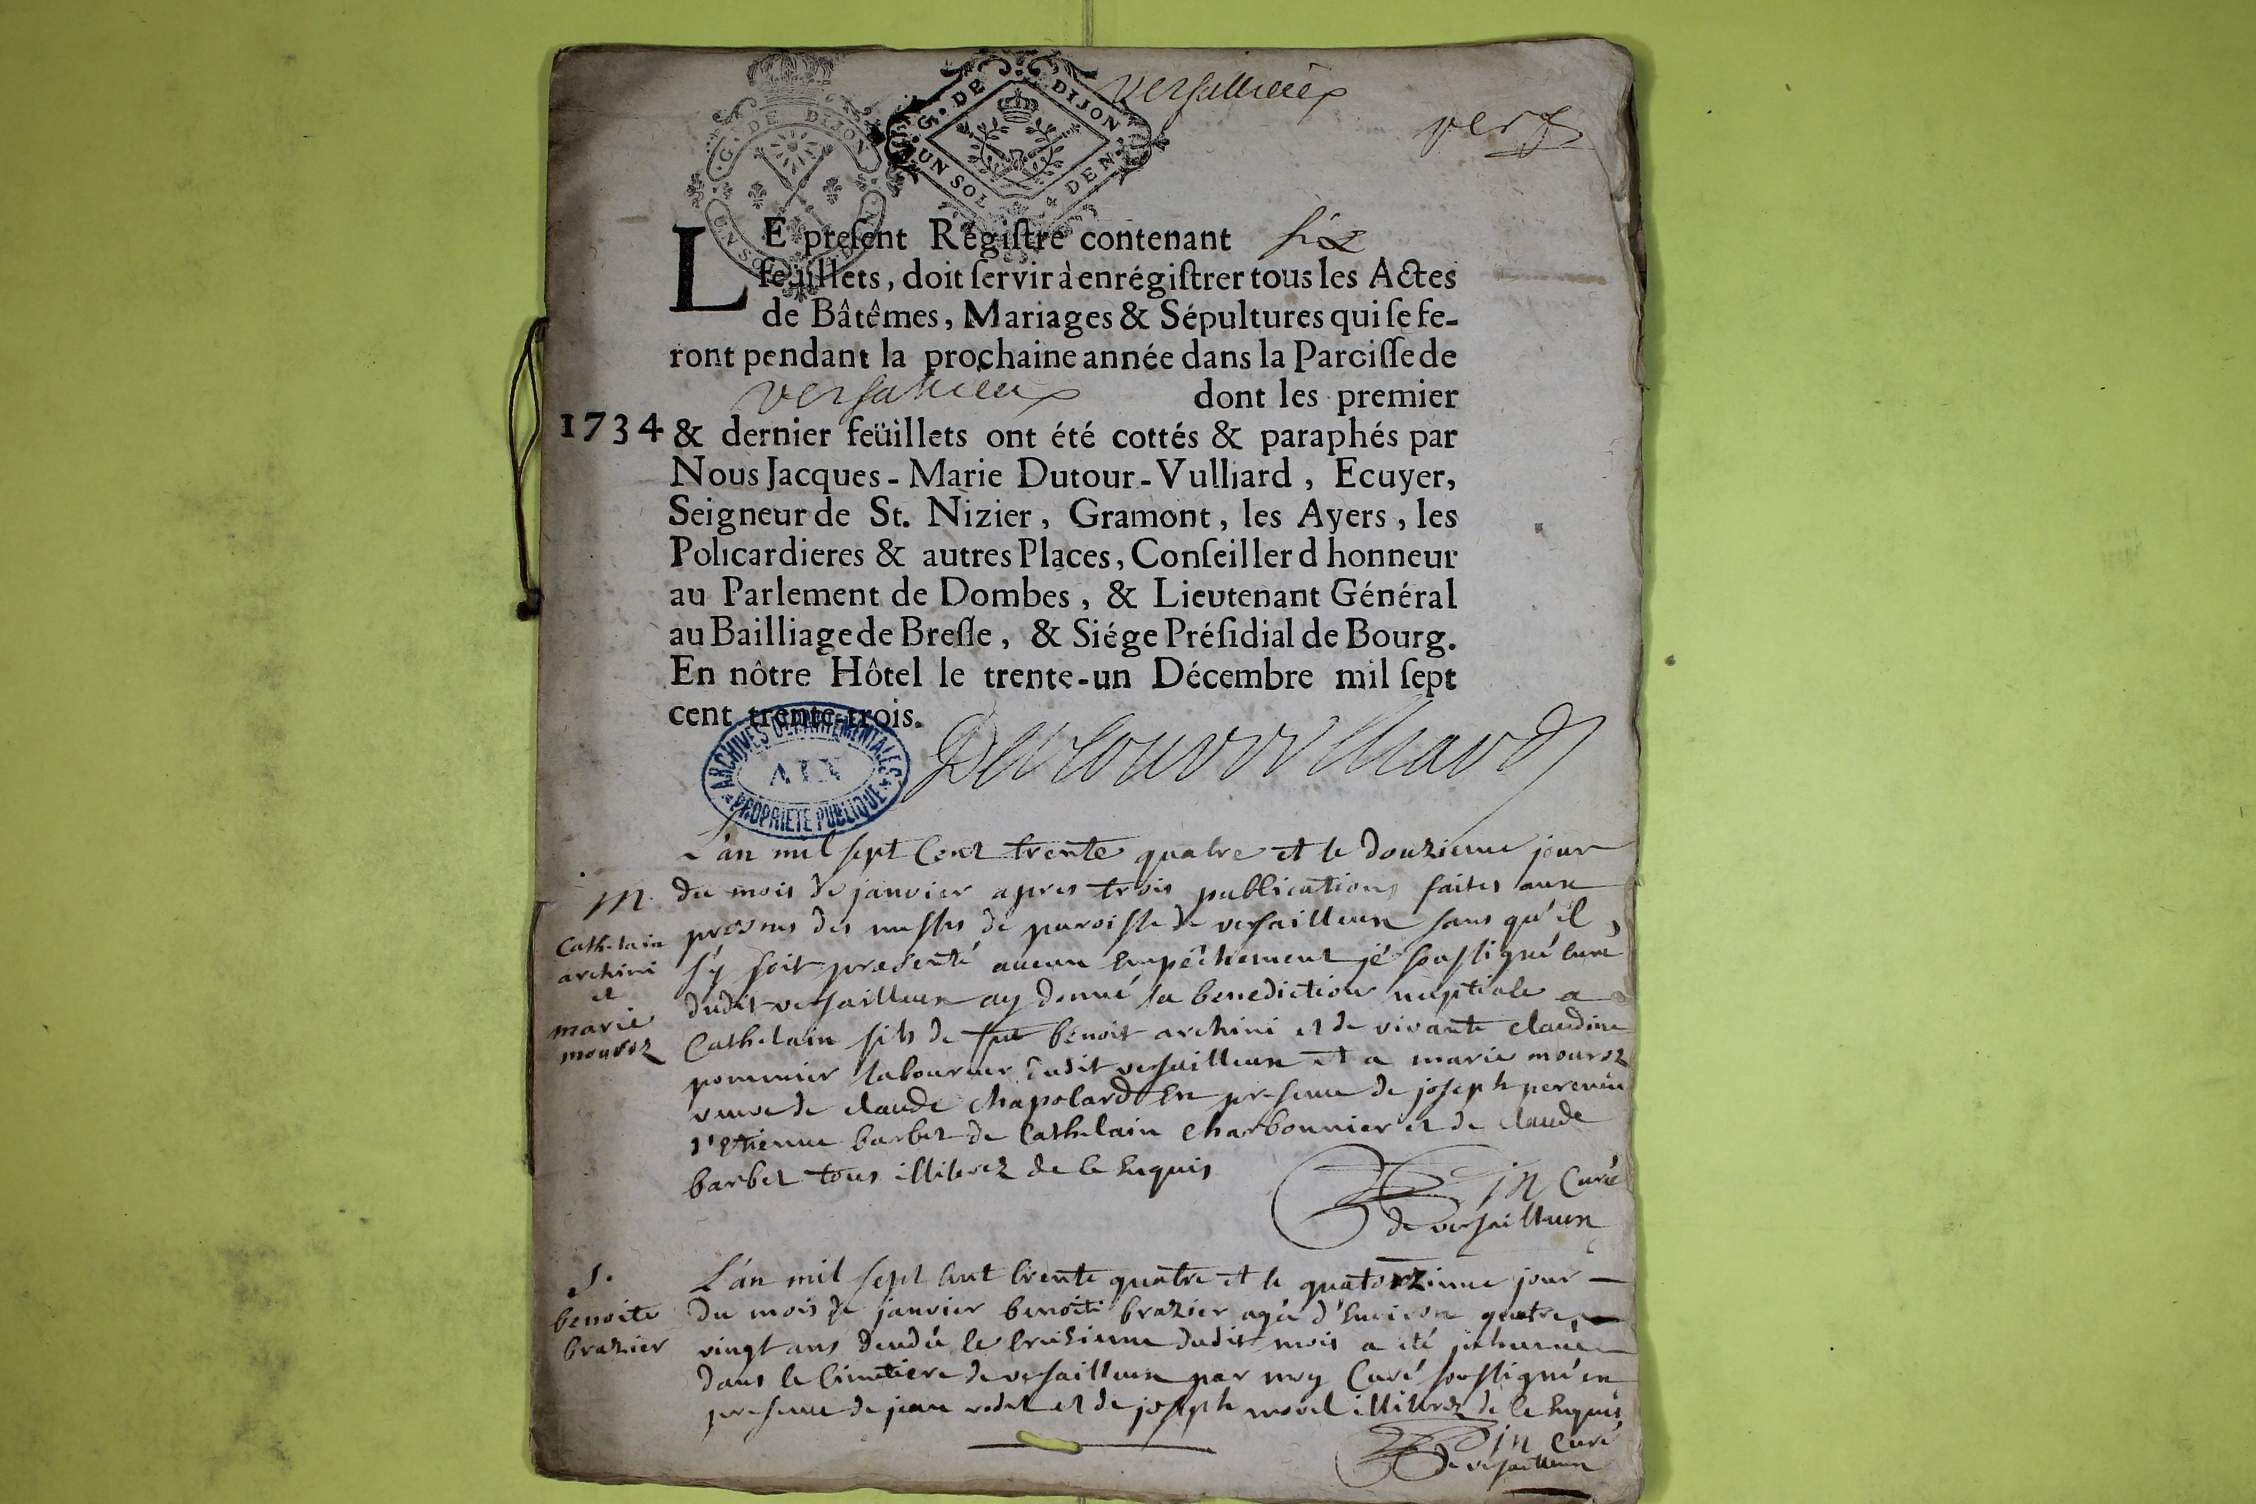 G. DE DIJON
UN SOL
G. DE DIJON
UN SOL 4 DEN.
Versallieux
vers
LE preſent Regiſtre contenant six
feüillets, doit ſervir à enrégiſtrer tous les Actes
de Bâtêmes, Mariages & Sépultures qui ſe fe-
ront pendant la prochaine année dans la Paroiſſe de
Versalieux dont les premier
1734 & dernier feüillets ont été cottés & paraphés par
Nous Jacques-Marie Dutour-Vulliard, Ecuyer,
Seigneur de St. Nizier, Gramont, les Ayers, les
Policardieres & autres Places, Conſeiller d honneur
au Parlement de Dombes, & Lieutenant Général
au Bailliage de Breſſe, & Siége Préſidial de Bourg.
En nôtre Hôtel le trente-un Décembre mil ſept
cent trente-trois.
ARCHIVES DEPARTEMENTALES
AIN
PROPRIETE PUBLIQUE
L'an mil sept Cent trente quatre et le douzieme jour
M. du mois de janvier apres trois publications faites aux
Cathelain archini et marie mouroz
prosnes des messes de paroisse de versailleux sans qu'il
s'y soit presenté aucun Empêchement je soussigné curé
dudit versailleux ay donné la benediction nuptiale a
Cathelain fils de feu benoit archini et de vivante claudine
pommier laboureur dudit versailleux et a marie mouroz
veuve de claude chapolard En presence de joseph perenin
d'Etienne barbet de Cathelain charbonnier et de claude
barbet tous illiterez de ce Enquis
curé
de versailleux
S.
benoite
brazier
L'an mil sept cent trente quatre et le quatorzieme jour
du mois de janvier benoite brazier agée d'Environ quatre
vingt ans decedée le treizieme dudit mois a eté inhumée
dans le Cimetiere de versailleux par moy Curé soussigné en
presence de jean rodet et de joseph morel illiterez de ce Enquis
curé
de versailleux